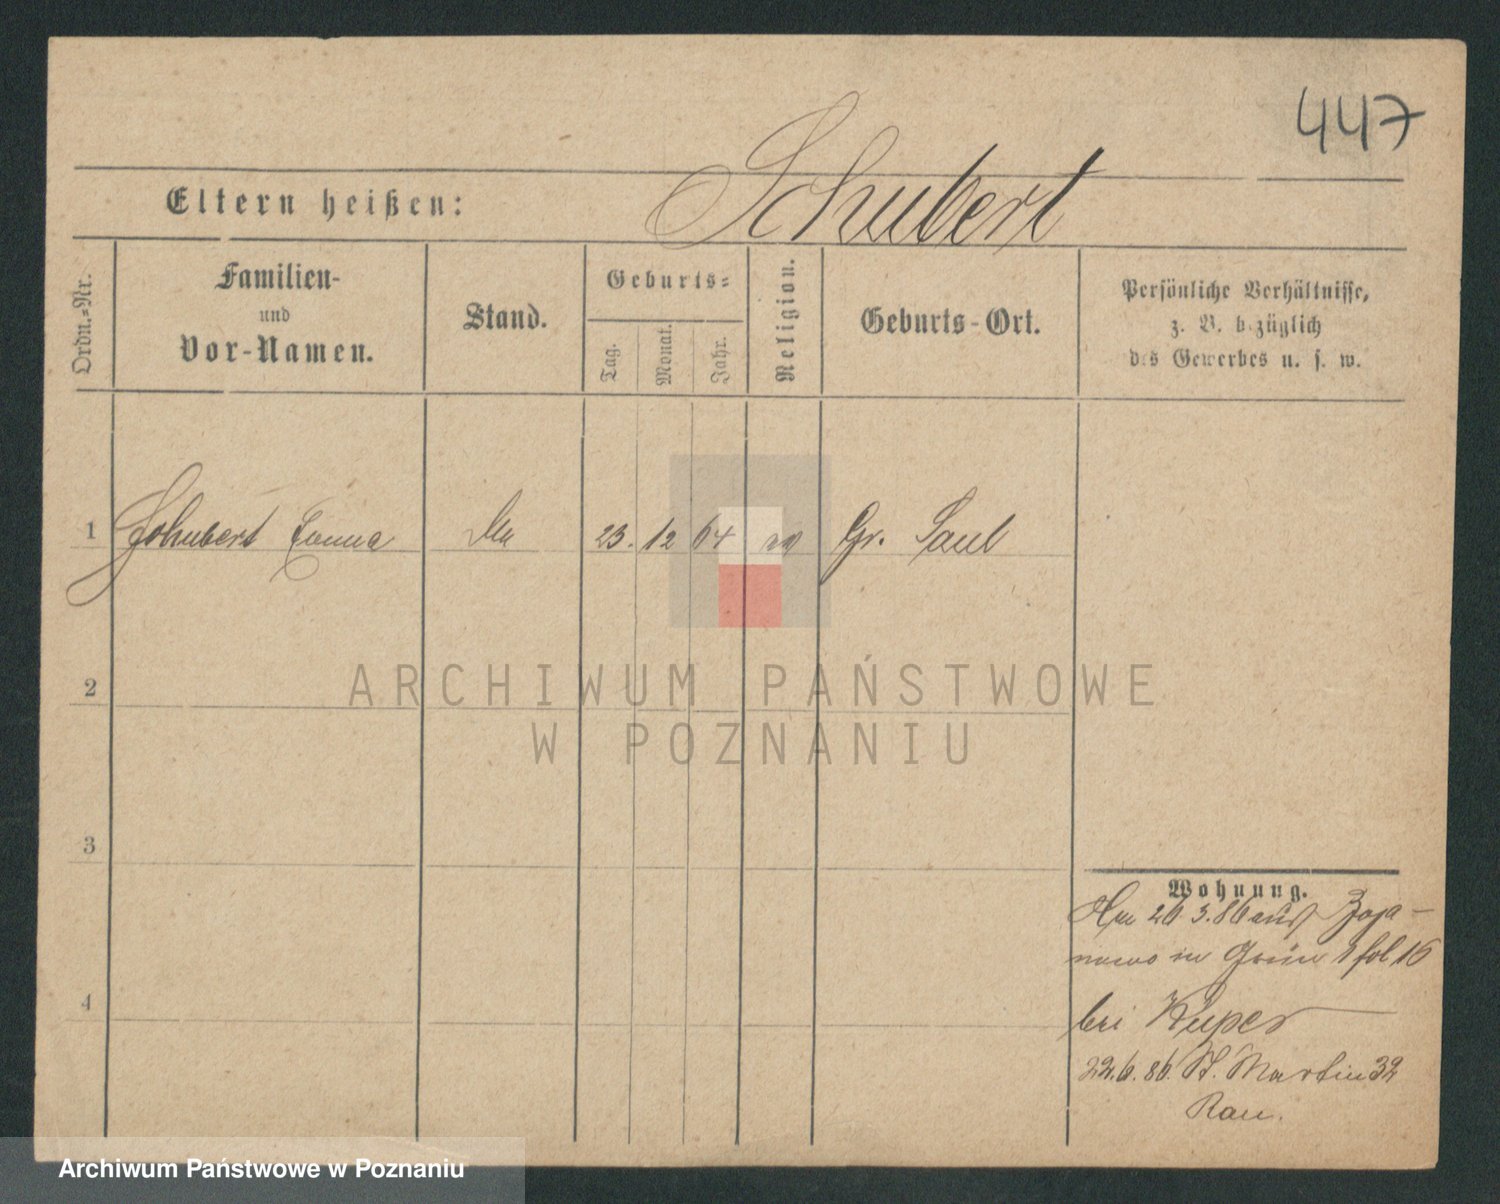 447
Eltern heißen: Schubert
Ordn.=Nr.
Familien-
und
Vor-Namen.
Stand.
Geburts=
Tag.
Monat.
Jahr.
Religion.
Geburts-Ort.
Persönliche Verhältnisse,
z. B. bezüglich
des Gewerbes u. s. w.
1 Schubert Emma 23. 12 64 Gr. Saul
2
3
4
ARCHIWUM PAŃSTWOWE
W POZNANIU
Wohnung.
26 3.86 aus
in 1 fol 16
bei Küper
22.6.86. St. Martin 32
Rau.
Archiwum Państwowe w Poznaniu